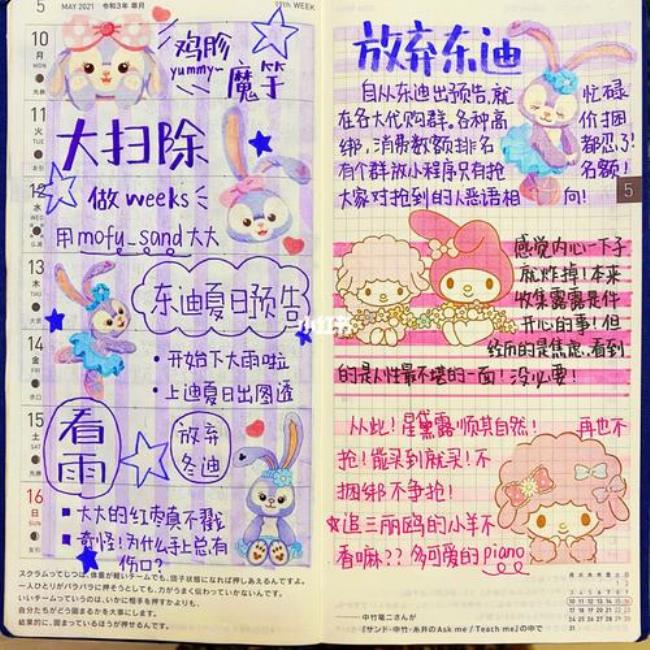 5 MAY 2021 令和3年 皐月
19th WEEK
10
月
MON
先勝
鸡胗
yummy~
魔芋
11
火
TUE
大扫除
12
水
WED
做weeks
用mofy_sand大大
13
木
THU
大安
东迪夏日预告
14
金
FRI
赤口
• 开始下大雨啦
• 上迪夏日出图透
15
土
SAT
先勝
看雨
放弃
冬迪
16
日
SUN
友引
■ 大大的红枣真不戳
■ 奇怪!为什么手上总有
伤口?
スクラムってじつは、体重が軽いチームでも、団子状態になれば押しあえるんですよ。
一人ひとりがバラバラに押そうとしても、力がうまく伝わっていかないんです。
いいチームっていうのは、いかに相手を押すかよりも、
自分たちがどう固まるかを大事にします。
結果的に、固まっているほうが押せるんです。
放弃东迪
自从东迪出预告,就 忙碌
在各大代购群。各种高 价捆
绑,消费数额排名 都忍了!
有个群放小程序只有抢 名额!
大家对抢到的人恶语相 向!
5
感觉内心一下子
就炸掉!本来
收集露露是件
开心的事!但
经历的是焦虑,看到
的是人性最不堪的一面!没必要!
小红书
从此!星黛露顺其自然! 再也不
抢!能买到就买!不
捆绑不争抢!
★追三丽鸥的小羊不
香嘛??多可爱的piano
——中竹竜二さんが
『サンド・中竹・糸井のAsk me / Teach me』の中で
月 火 水 木 金 土 日
1 2
3 4 5 6 7 8 9
10 11 12 13 14 15 16
17 18 19 20 21 22 23
24 25 26 27 28 29 30
31